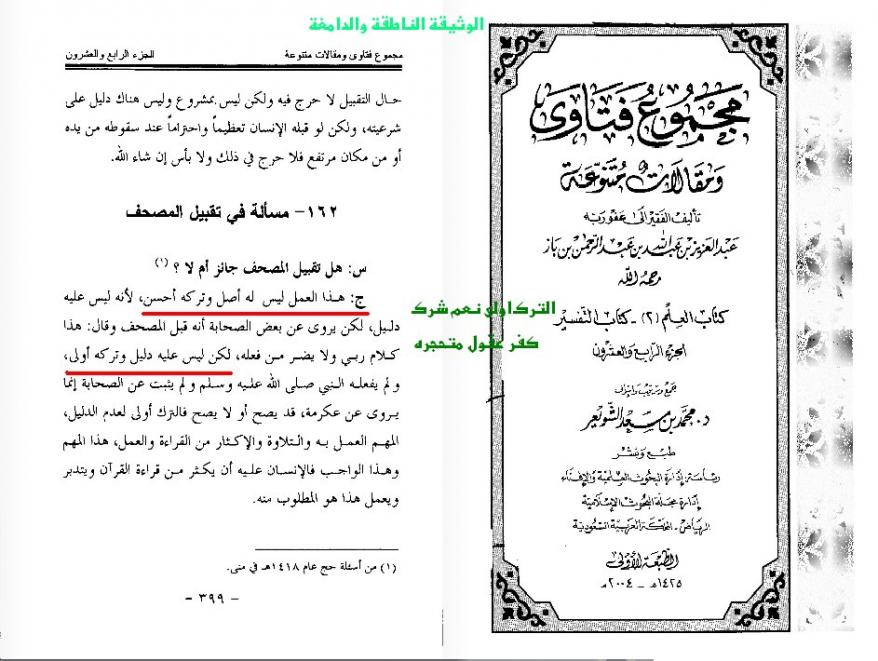 الوثيقة الناطقة والدامغة
مجموع فتاوى
ومقالات متنوعة
تأليف الفقير إلى عفو ربه
عبد العزيز بن عبد الله بن عبد الرحمن بن باز
رحمه الله
كتاب العلم (٢) - كتاب التفسير
الجزء الرابع والعشرون
جمع وترتيب وإشراف
د. محمد بن سعد الشويعر
طبع ونشر
رئاسة إدارة البحوث العلمية والإفتاء
إدارة مجلة البحوث الإسلامية
الرياض - المملكة العربية السعودية
الطبعة الأولى
١٤٢٥هـ - ٢٠٠٤م
مجموع فتاوى ومقالات متنوعة الجزء الرابع والعشرون
حال التقبيل لا حرج فيه ولكن ليس بمشروع وليس هناك دليل على
شرعيته، ولكن لو قبله الإنسان تعظيماً واحتراماً عند سقوطه من يده
أو من مكان مرتفع فلا حرج في ذلك ولا بأس إن شاء الله.
١٦٢- مسألة في تقبيل المصحف
س: هل تقبيل المصحف جائز أم لا ؟ (١)
ج: هذا العمل ليس له أصل وتركه أحسن، لأنه ليس عليه
دليل، لكن يروى عن بعض الصحابة أنه قبل المصحف وقال: هذا
كلام ربي ولا يضر من فعله، لكن ليس عليه دليل وتركه أولى،
ولم يفعله النبي صلى الله عليه وسلم ولم يثبت عن الصحابة إنما
يروى عن عكرمة، قد يصح أو لا يصح فالترك أولى لعدم الدليل،
المهم العمل به والتلاوة والإكثار من القراءة والعمل، هذا المهم
وهذا الواجب فالإنسان عليه أن يكثر من قراءة القرآن ويتدبر
ويعمل هذا هو المطلوب منه.
(١) من أسئلة حج عام ١٤١٨هـ في منى.
- ٣٩٩ -
الترك اولى نعم شرك
كفر عقول متحجره